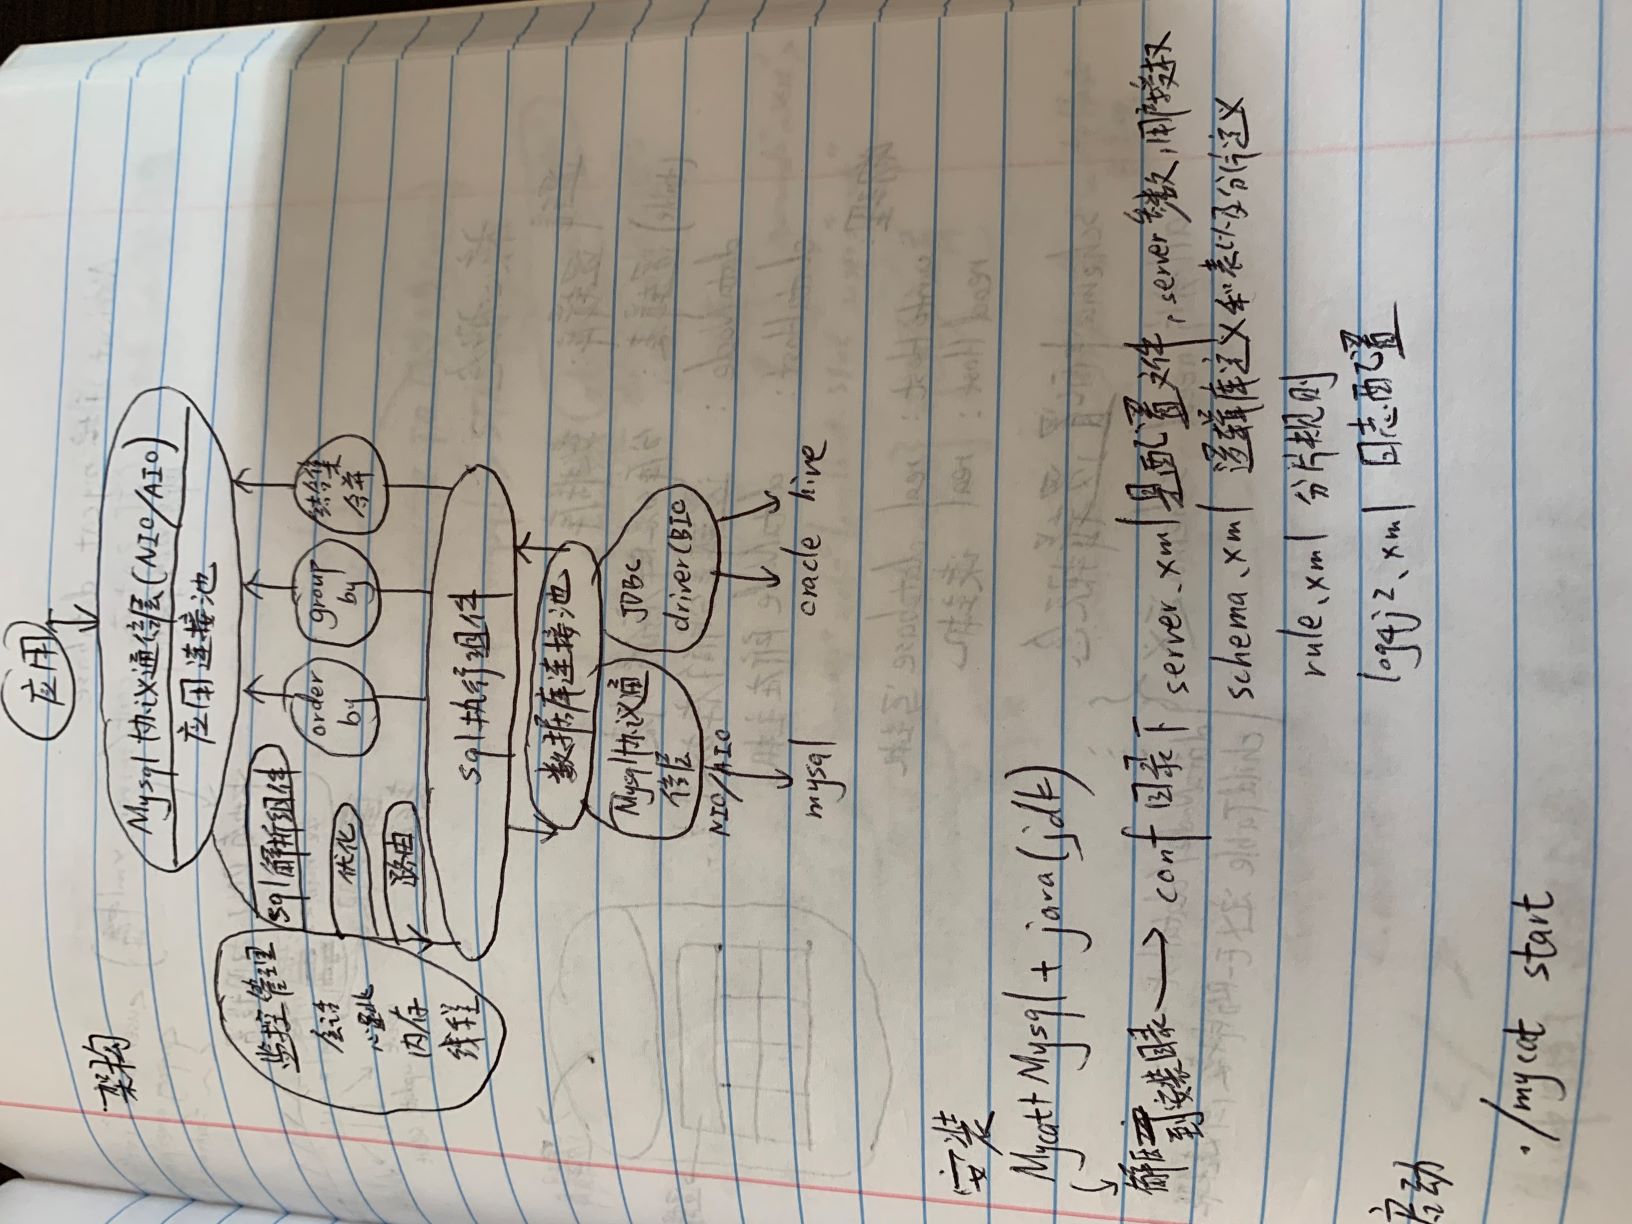 架构
应用
Mysql协议通信层(NIO/AIO)
应用连接池
监控管理
会话
心跳
内存
线程
sql解析组件
优化
路由
order
by
group
by
结果集
合并
sql执行组件
数据库连接池
Mysql协议通
信层
NIO/AIO
JDBC
driver(BIO
mysql
oracle
hive
安装
Mycat+Mysql+java(jdk)
解压到安装目录→conf目录下
server.xml是配置文件,server参数,用户授权
schema.xml 逻辑库定义和表以及分片定义
rule.xml 分片规则
log4j2.xml 日志配置
启动
./mycat start